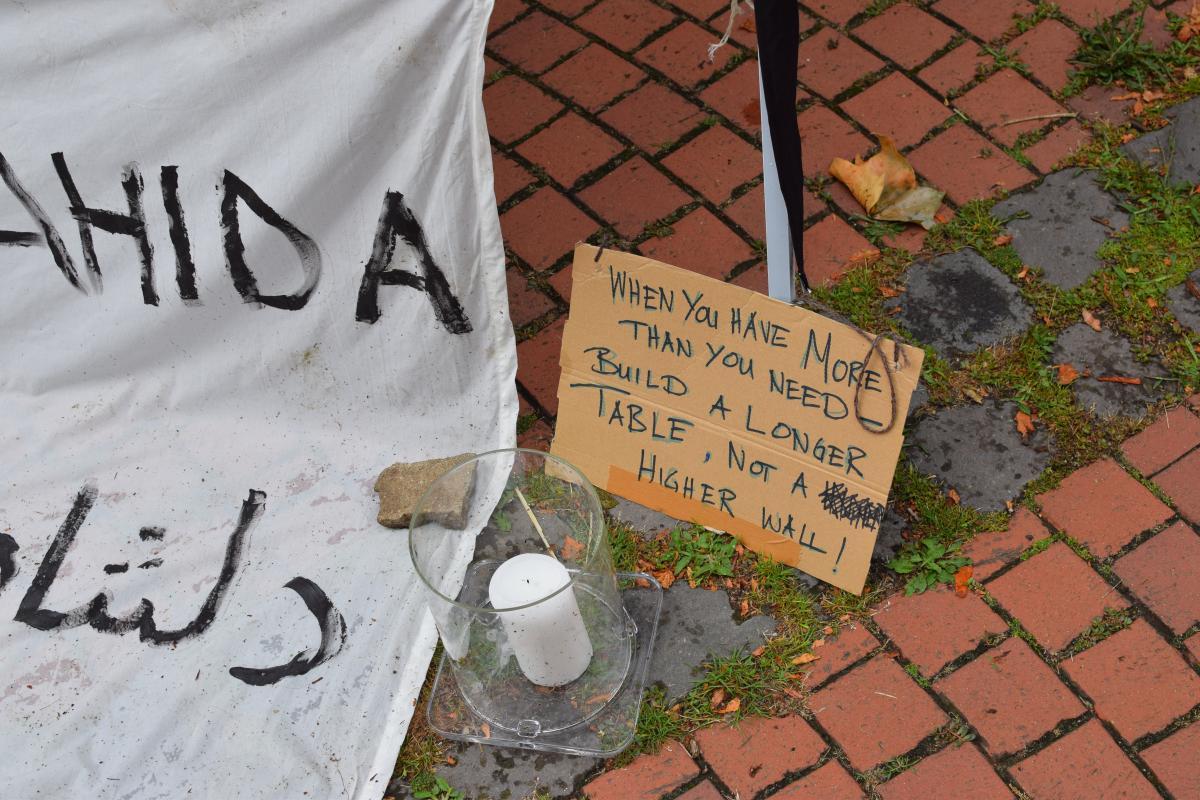 AHIDA
دلشا
WHEN YOU HAVE MORE
THAN YOU NEED_
BUILD A LONGER
TABLE, NOT A
HIGHER WALL!